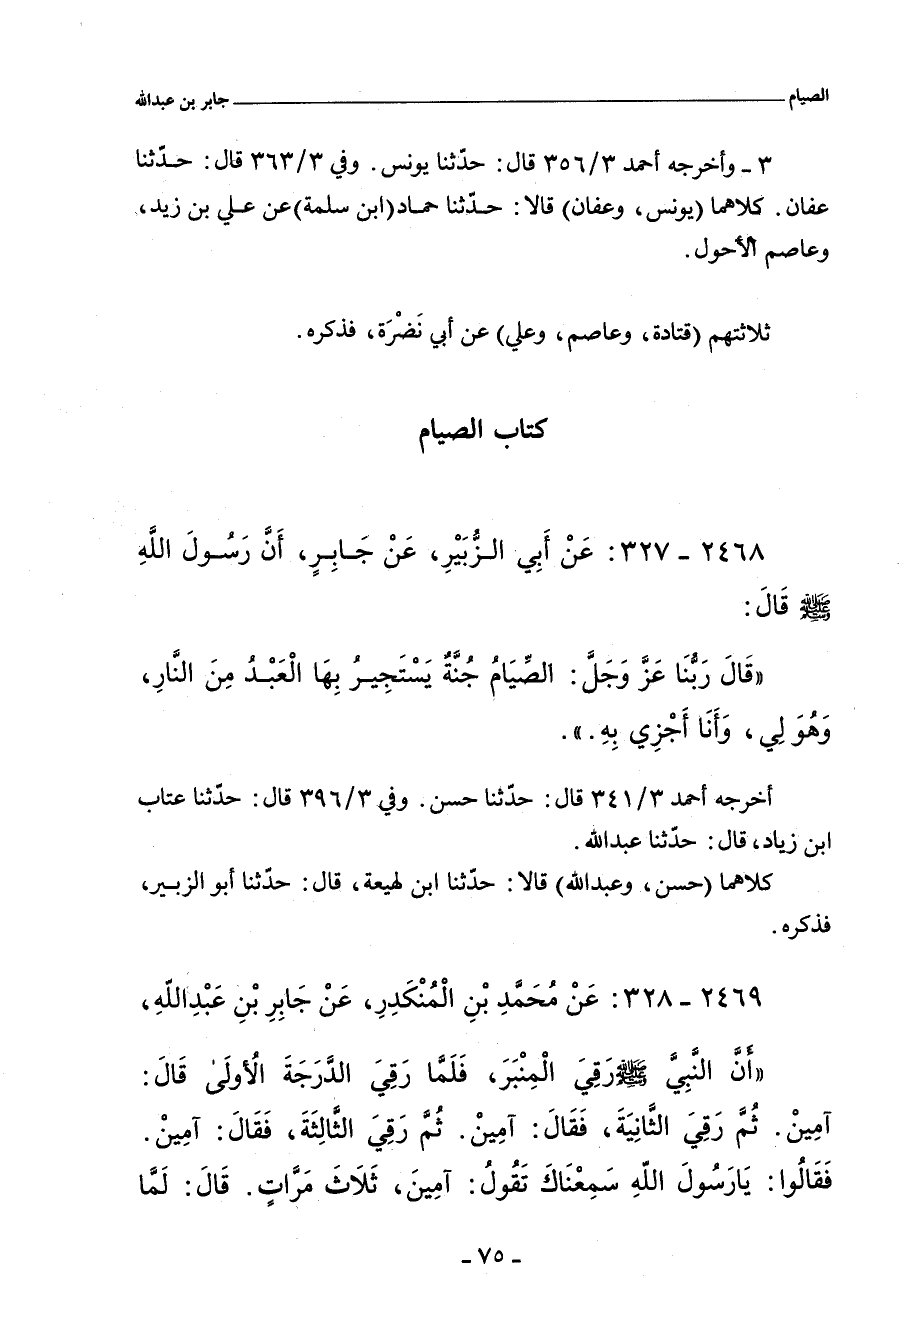 الصيام ــــــ جابر بن عبدالله
٣ ـ وأخرجه أحمد ٣٥٦/٣ قال: حدّثنا يونس. وفي ٣٦٣/٣ قال: حدّثنا
عفان. كلاهما (يونس، وعفان) قالا: حدّثنا حماد(ابن سلمة)عن علي بن زيد،
وعاصم الأحول.
ثلاثتهم (قتادة، وعاصم، وعلي) عن أبي نَضْرَة، فذكره.
كتاب الصيام
٢٤٦٨ ـ ٣٢٧: عَنْ أَبِي الزُّبَيْرِ، عَنْ جَابِرٍ، أَنَّ رَسُولَ اللَّهِ
ﷺ قَالَ:
«قَالَ رَبُّنَا عَزَّ وَجَلَّ: الصِّيَامُ جُنَّةٌ يَسْتَجِيرُ بِهَا الْعَبْدُ مِنَ النَّارِ،
وَهُوَ لِي، وَأَنَا أَجْزِي بِهِ.».
أخرجه أحمد ٣٤١/٣ قال: حدّثنا حسن. وفي ٣٩٦/٣ قال: حدّثنا عتاب
ابن زياد، قال: حدّثنا عبدالله.
كلاهما (حسن، وعبدالله) قالا: حدّثنا ابن لهيعة، قال: حدّثنا أبو الزبير،
فذكره.
٢٤٦٩ ـ ٣٢٨: عَنْ مُحَمَّدِ بْنِ الْمُنْكَدِرِ، عَنْ جَابِرِ بْنِ عَبْدِاللّهِ،
«أَنَّ النَّبِيَّ ﷺ رَقِيَ الْمِنْبَرَ، فَلَمَّا رَقِيَ الدَّرَجَةَ الْأُولَىٰ قَالَ:
آمِينْ. ثُمَّ رَقِيَ الثَّانِيَةَ، فَقَالَ: آمِينْ. ثُمَّ رَقِيَ الثَّالِثَةَ، فَقَالَ: آمِينْ.
فَقَالُوا: يَارَسُولَ اللّهِ سَمِعْنَاكَ تَقُولُ: آمِينَ، ثَلَاثَ مَرَّاتٍ. قَالَ: لَمَّا
ـ ٧٥ ـ